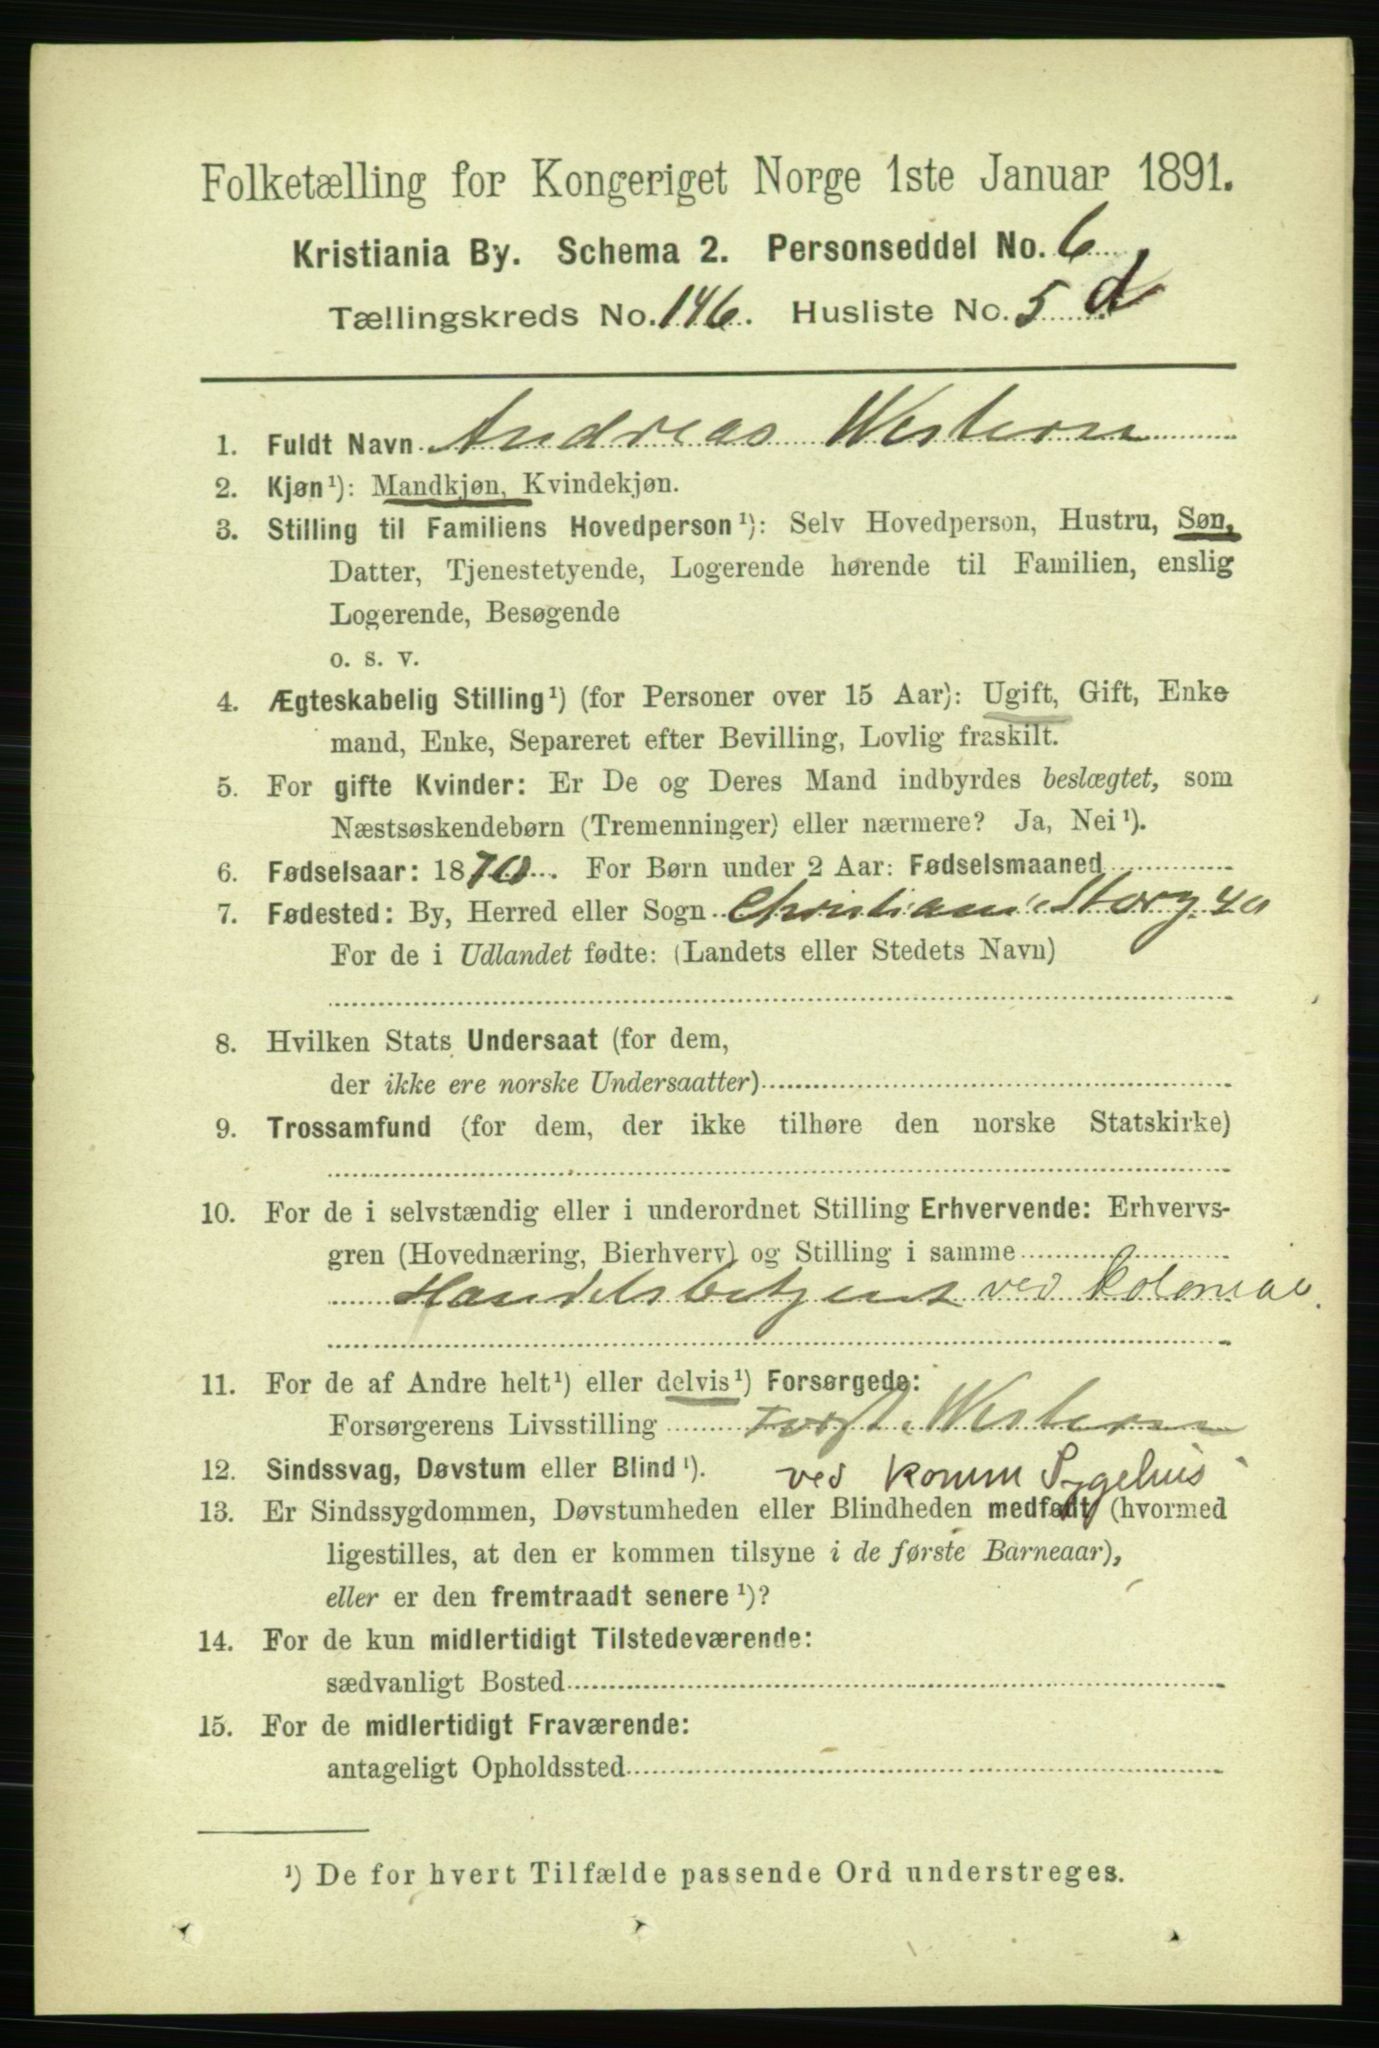 Folketælling for Kongeriget Norge 1ste Januar 1891.
Kristiania By. Schema 2. Personseddel No. 6
Tællingskreds No. 146. Husliste No. 5 d
1. Fuldt Navn Andreas Western
2. Kjøn¹): Mandkjøn, Kvindekjøn.
3. Stilling til Familiens Hovedperson¹): Selv Hovedperson, Hustru, Søn,
Datter, Tjenestetyende, Logerende hørende til Familien, enslig
Logerende, Besøgende
o. s. v.
4. Ægteskabelig Stilling¹) (for Personer over 15 Aar): Ugift, Gift, Enke
mand, Enke, Separeret efter Bevilling, Lovlig fraskilt.
5. For gifte Kvinder: Er De og Deres Mand indbyrdes beslægtet, som
Næstsøskendebørn (Tremenninger) eller nærmere? Ja, Nei¹).
6. Fødselsaar: 1870. For Børn under 2 Aar: Fødselsmaaned
7. Fødested: By, Herred eller Sogn Christiania Storg. 40
For de i Udlandet fødte: (Landets eller Stedets Navn)
8. Hvilken Stats Undersaat (for dem,
der ikke ere norske Undersaatter)
9. Trossamfund (for dem, der ikke tilhøre den norske Statskirke)
10. For de i selvstændig eller i underordnet Stilling Erhvervende: Erhvervs-
gren (Hovednæring, Bierhverv) og Stilling i samme
Handelsbetjent ved Kolonial.
11. For de af Andre helt¹) eller delvis¹) Forsørgede:
Forsørgerens Livsstilling Western
12. Sindssvag, Døvstum eller Blind¹). ved Komm Sygehus
13. Er Sindssygdommen, Døvstumheden eller Blindheden medfødt (hvormed
ligestilles, at den er kommen tilsyne i de første Barneaar),
eller er den fremtraadt senere¹)?
14. For de kun midlertidigt Tilstedeværende:
sædvanligt Bosted
15. For de midlertidigt Fraværende:
antageligt Opholdssted
¹) De for hvert Tilfælde passende Ord understreges.